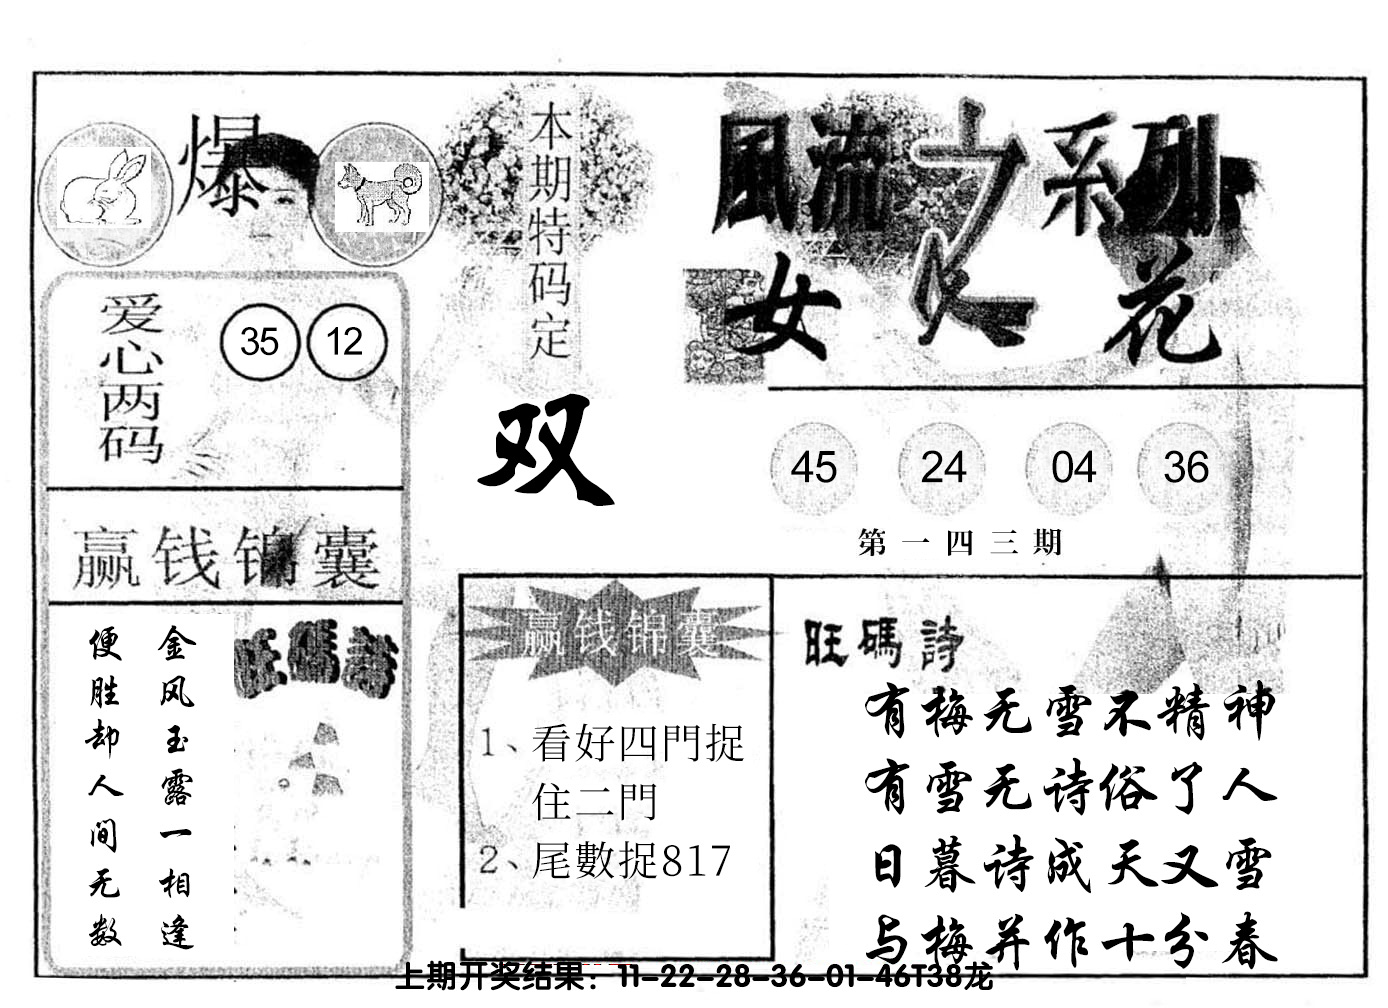 爆
本期特码定
双
風流之系列
女人花
爱心两码
35 12
45 24 04 36
第一四三期
赢钱锦囊
金风玉露一相逢
便胜却人间无数
旺碼詩
赢钱锦囊
1、看好四門捉
住二門
2、尾數捉817
旺碼詩
有梅无雪不精神
有雪无诗俗了人
日暮诗成天又雪
与梅并作十分春
上期开奖结果：11-22-28-36-01-46T38龙